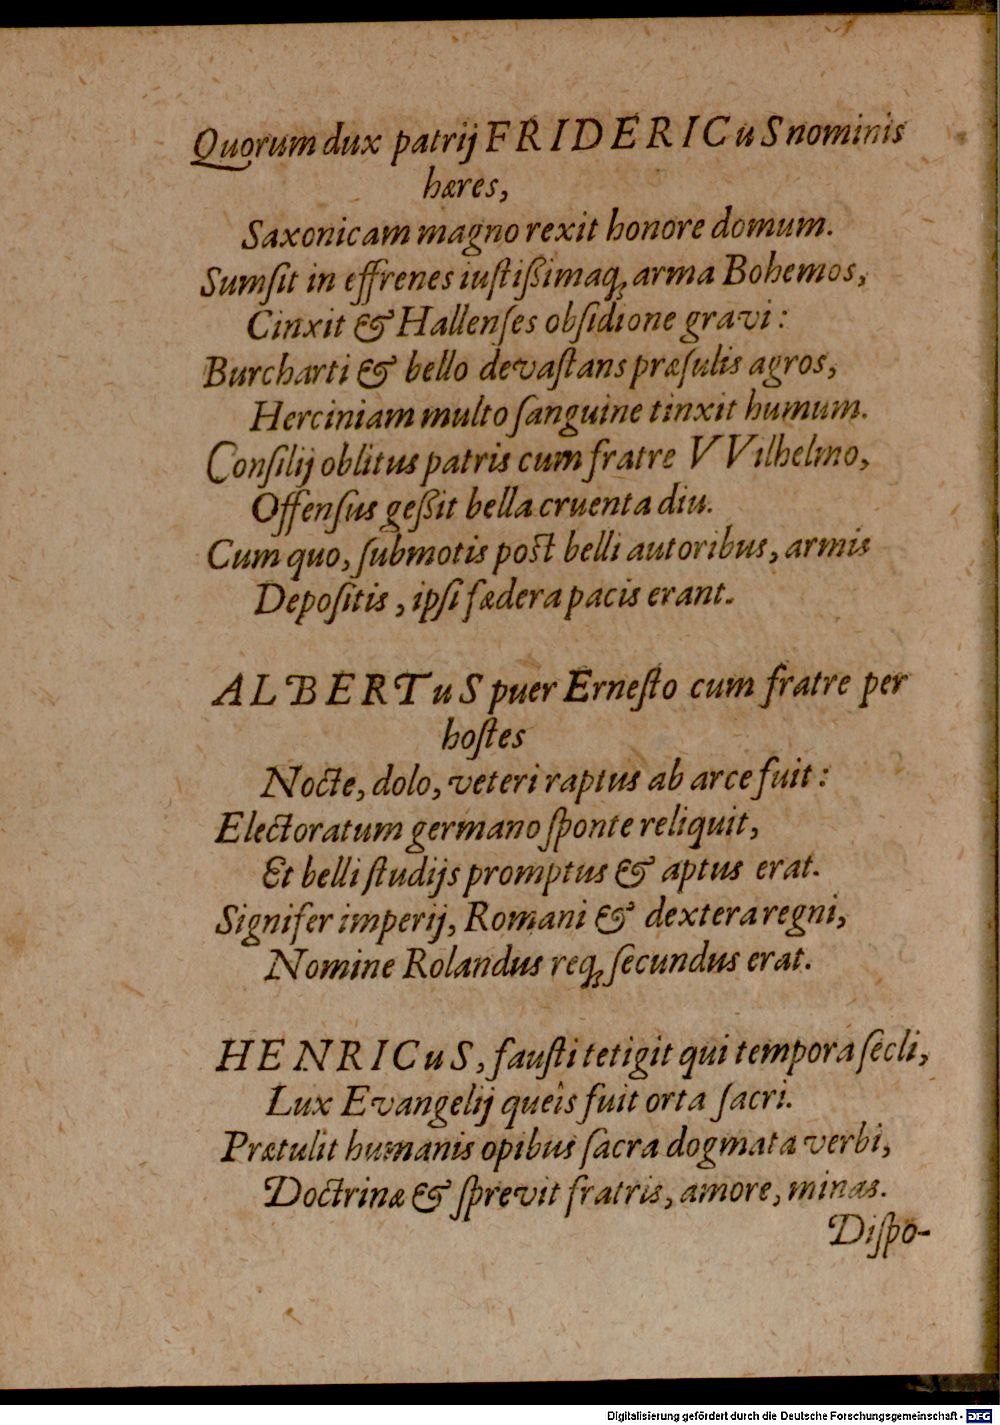 Quorum dux patrij FRIDERICuS nominis
hæres,
Saxonicam magno rexit honore domum.
Sumſit in effrenes iuſtißimaq́; arma Bohemos,
Cinxit & Hallenſes obſidione gravi:
Burcharti & bello devaſtans præſulis agros,
Herciniam multo ſanguine tinxit humum.
Conſilij oblitus patris cum fratre VVilhelmo,
Offenſus geßit bella cruenta diu.
Cum quo, ſubmotis post belli autoribus, armis
Depoſitis, ipſi fædera pacis erant.
ALBERTuS puer Erneſto cum fratre per
hoſtes
Nocte, dolo, veteri raptus ab arce fuit:
Electoratum germano ſponte reliquit,
Et belli ſtudijs promptus & aptus erat.
Signifer imperij, Romani & dextera regni,
Nomine Rolandus req́; ſecundus erat.
HENRICuS, fauſti tetigit qui tempora ſecli,
Lux Evangelij queîs fuit orta ſacri.
Prætulit humanis opibus ſacra dogmata verbi,
Doctrinæ & ſprevit fratris, amore, minas.
Diſpo-
Digitalisierung gefördert durch die Deutsche Forschungsgemeinschaft - DFG